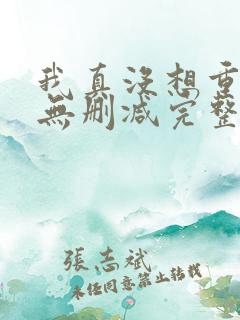 我真没想重
無删减完整
張志斌
未经同意禁止转载